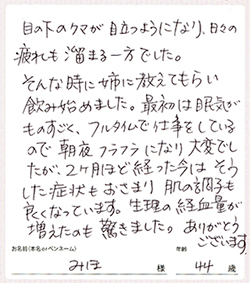 目の下のクマが目立つようになり、日々の
疲れも溜まる一方でした。
そんな時に姉に教えてもらい
飲み始めました。最初は眠気が
ものすごく、フルタイムで仕事をしている
ので朝夜フラフラになり大変でし
たが、2ヶ月ほど経った今はそう
した症状もおさまり肌の調子も
良くなっています。生理の経血量が
増えたのも驚きました。ありがとう
ございます。
お名前(本名orペンネーム) 年齢
みほ 様 44 歳